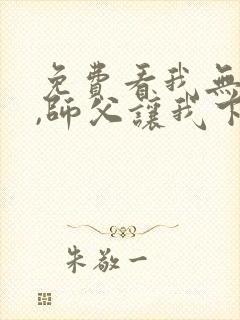 免費看我無
,師父讓我下
朱敬一